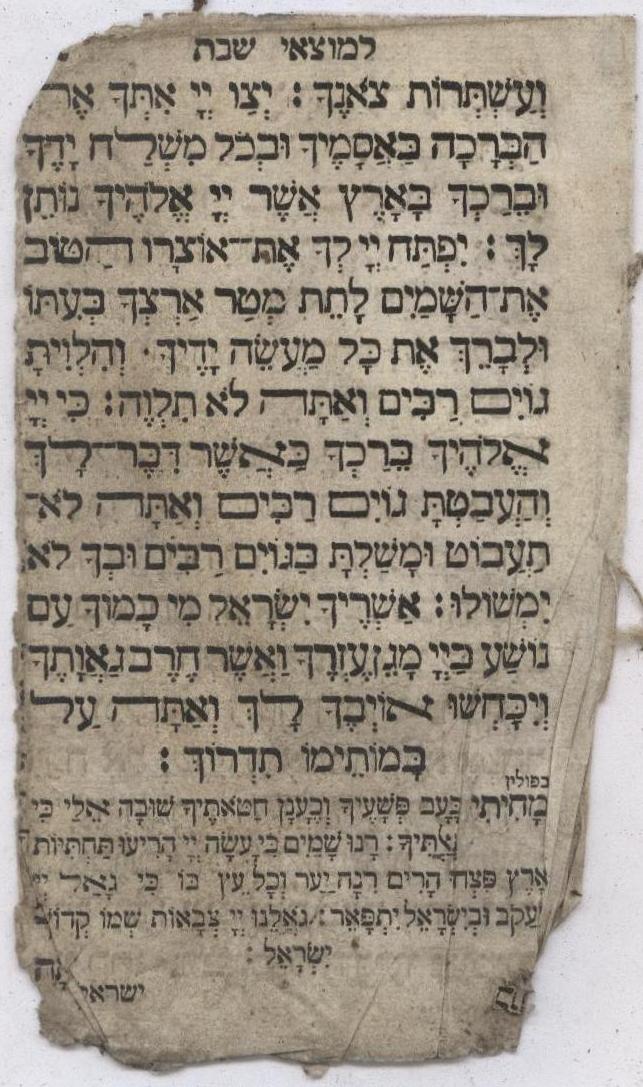 למוצאי שבת
וְעַשְׁתְּרוֹת צֹאנֶךָ: יְצַו יְיָ אִתְּךָ אֶת
הַבְּרָכָה בַּאֲסָמֶיךָ וּבְכֹל מִשְׁלַח יָדֶךָ
וּבֵרַכְךָ בָּאָרֶץ אֲשֶׁר יְיָ אֱלֹהֶיךָ נוֹתֵן
לָךְ: יִפְתַּח יְיָ לְךָ אֶת־אוֹצָרוֹ הַטּוֹב
אֶת־הַשָּׁמַיִם לָתֵת מְטַר אַרְצְךָ בְּעִתּוֹ
וּלְבָרֵךְ אֶת כָּל מַעֲשֵׂה יָדֶיךָ. וְהִלְוִיתָ
גוֹיִם רַבִּים וְאַתָּה לֹא תִלְוֶה: כִּי יְיָ
אֱלֹהֶיךָ בֵּרַכְךָ כַּאֲשֶׁר דִּבֶּר־לָךְ
וְהַעֲבַטְתָּ גוֹיִם רַבִּים וְאַתָּה לֹא־
תַעֲבוֹט וּמָשַׁלְתָּ בַּגּוֹיִם רַבִּים וּבְךָ לֹא
יִמְשׁוֹלוּ: אַשְׁרֶיךָ יִשְׂרָאֵל מִי כָמוֹךָ עַם
נוֹשַׁע בַּיְיָ מָגֵן עֶזְרֶךָ וַאֲשֶׁר חֶרֶב גַּאֲוָתֶךָ
וְיִכָּחֲשׁוּ אוֹיְבֶיךָ לָךְ וְאַתָּה עַל
בָּמוֹתֵימוֹ תִדְרוֹךְ:
בפולין
מָחִיתִי כָעָב פְּשָׁעֶיךָ וְכֶעָנָן חַטֹּאתֶיךָ שׁוּבָה אֵלַי כִּי
גְאַלְתִּיךָ: רָנּוּ שָׁמַיִם כִּי עָשָׂה יְיָ הָרִיעוּ תַּחְתִּיּוֹת
אָרֶץ פִּצְחוּ הָרִים רִנָּה יַעַר וְכָל עֵץ בּוֹ כִּי גָאַל יְיָ
יַעֲקֹב וּבְיִשְׂרָאֵל יִתְפָּאֵר: גֹּאֲלֵנוּ יְיָ צְבָאוֹת שְׁמוֹ קְדוֹשׁ
יִשְׂרָאֵל:
ישראל